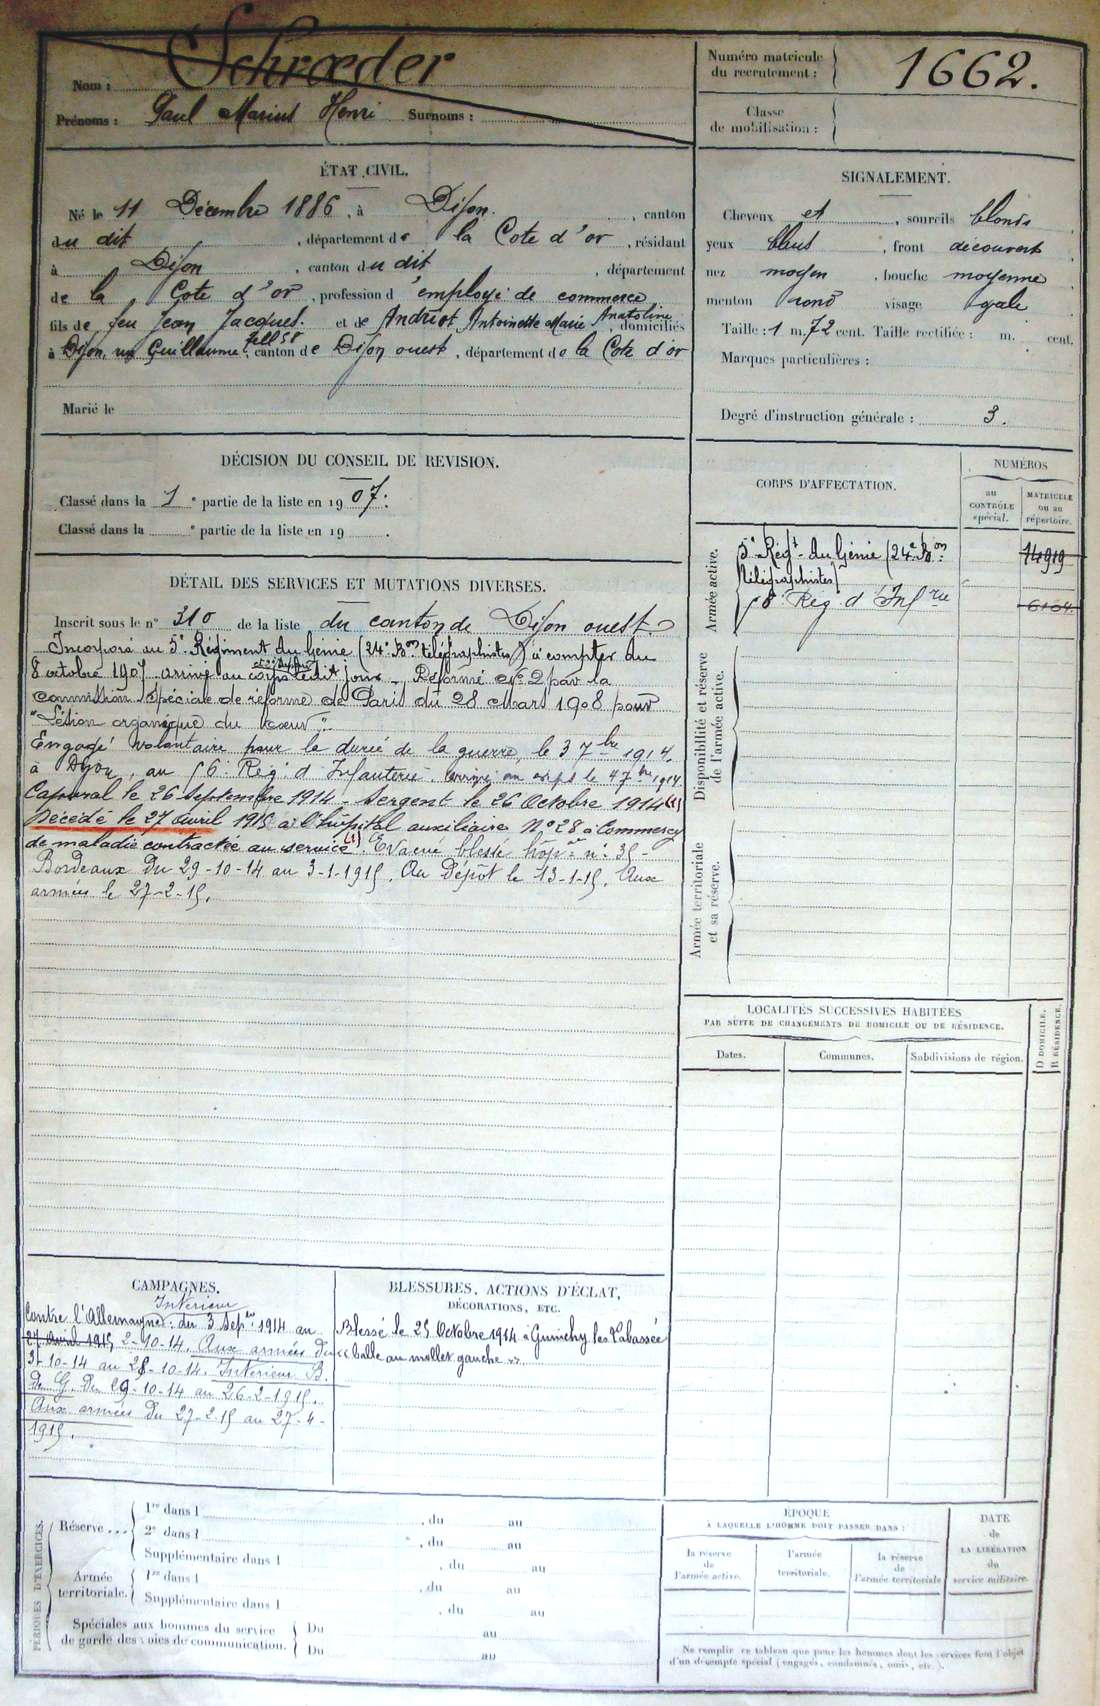 Nom : Schrœder
Prénoms : Paul Marius Henri Surnoms :
Numéro matricule
du recrutement : 1662.
Classe
de mobilisation :
ÉTAT CIVIL.
Né le 11 Décembre 1886, à Dijon, canton
du dit, département de la Cote d'or, résidant
à Dijon, canton du dit, département
de la Cote d'or, profession d'employé de commerce
fils de feu Jean Jacques et de Andriot Antoinette Marie Anatoline, domiciliés
à Dijon, rue Guillaume Tell 58 canton de Dijon ouest, département de la Cote d'or
Marié le
SIGNALEMENT.
Cheveux et, sourcils blonds
yeux bleus, front découvert
nez moyen, bouche moyenne
menton rond visage ovale
Taille : 1 m. 72 cent. Taille rectifiée : m. cent.
Marques particulières :
Degré d'instruction générale : 3.
DÉCISION DU CONSEIL DE REVISION.
Classé dans la 1e partie de la liste en 1907.
Classé dans la e partie de la liste en 19 .
DÉTAIL DES SERVICES ET MUTATIONS DIVERSES.
Inscrit sous le n° 310 de la liste du canton de Dijon ouest
Incorporé au 5e Régiment du Génie (24e Bon télégraphistes) à compter du
8 octobre 1907 arrivé au corps ledit jour. Réformé n° 2 par la
commission spéciale de réforme de Paris du 28 Mars 1908 pour
"Lésion organique du cœur".
Engagé volontaire pour la durée de la guerre, le 3 7bre 1914.
à Dijon, au 56e Rég. d'Infanterie. Arrivé au corps le 4 7bre 1914
Caporal le 26 Septembre 1914 - Sergent le 26 Octobre 1914 (1)
Décédé le 27 avril 1915 à l'hôpital auxiliaire N° 28 à Commercy
de maladie contractée au service. (1) Evacué blessé hôp. n° 35 -
Bordeaux du 29-10-14 au 3-1-1915. Au Dépôt le 13-1-15. Aux
armées le 27-2-15.
CORPS D'AFFECTATION.
NUMÉROS
au
CONTRÔLE
spécial.
MATRICULE
ou au
répertoire.
Armée active.
5e Régt du Génie (24e Bon 14919
télégraphistes)
56e Rég. d'Infrie
Disponibilité et réserve
de l'armée active.
Armée territoriale
et sa réserve.
LOCALITÉS SUCCESSIVES HABITÉES
PAR SUITE DE CHANGEMENTS DE DOMICILE OU DE RÉSIDENCE.
Dates.
Communes.
Subdivisions de région.
D DOMICILE.
R RÉSIDENCE.
CAMPAGNES.
Intérieur
Contre l'Allemagne : du 3 Sepbre 1914 au
27 Avril 1915 2-10-14. Aux armées du
3-10-14 au 28-10-14. Intérieur B.
de G. Du 29-10-14 au 26-2-1915.
Aux armées Du 27-2-15 au 27-4-
1915.
BLESSURES, ACTIONS D'ÉCLAT,
DÉCORATIONS, ETC.
Blessé le 25 Octobre 1914 à Guinchy les Labassée
"balle au mollet gauche"
PÉRIODES D'EXERCICES.
Réserve ...
1re dans l , du au
2e dans l , du au
Supplémentaire dans l , du au
Armée
territoriale.
1re dans l , du au
Supplémentaire dans l , du au
Spéciales aux hommes du service
de garde des voies de communication.
Du au
Du au
ÉPOQUE
À LAQUELLE L'HOMME DOIT PASSER DANS :
la réserve
de
l'armée active.
l'armée
territoriale.
la réserve
de
l'armée territoriale
DATE
de
LA LIBÉRATION
du
service militaire.
Ne remplir ce tableau que pour les hommes dont les services font l'objet
d'un décompte spécial (engagés, condamnés, omis, etc.).